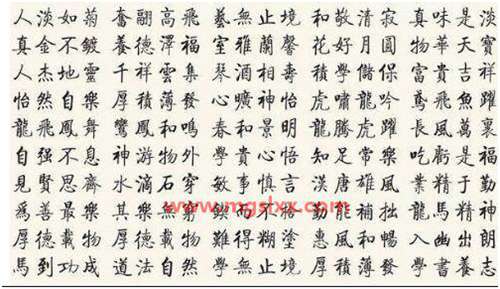 人淡如菊 奮翮高飛 藝無止境 和敬清寂 真味是淡
真金不鍍 養德澤福 室雅蘭馨 花好月圓 物華天寶
人杰地靈 千祥雲集 琴酒相壽 積學儲保 富貴吉祥
怡然自樂 厚積薄發 心曠神怡 虎嘯龍吟 鳶飛魚躍
龍飛鳳舞 鸞鳳和鳴 春和景明 龍騰虎躍 長風萬裏
自强不息 神游物外 學貴心悟 知足常樂 吃虧是福
見賢思齊 水滴石穿 敏事慎言 漢唐雄風 業精于勤
www.mgslxx.com
爲善最樂 其樂無窮 勤能補拙 龍馬精神
厚德載物 厚德載物 難得糊塗 惠風和暢 入幽出朗
馬到功成 道法自然 學無止境 厚積薄發 學書養志